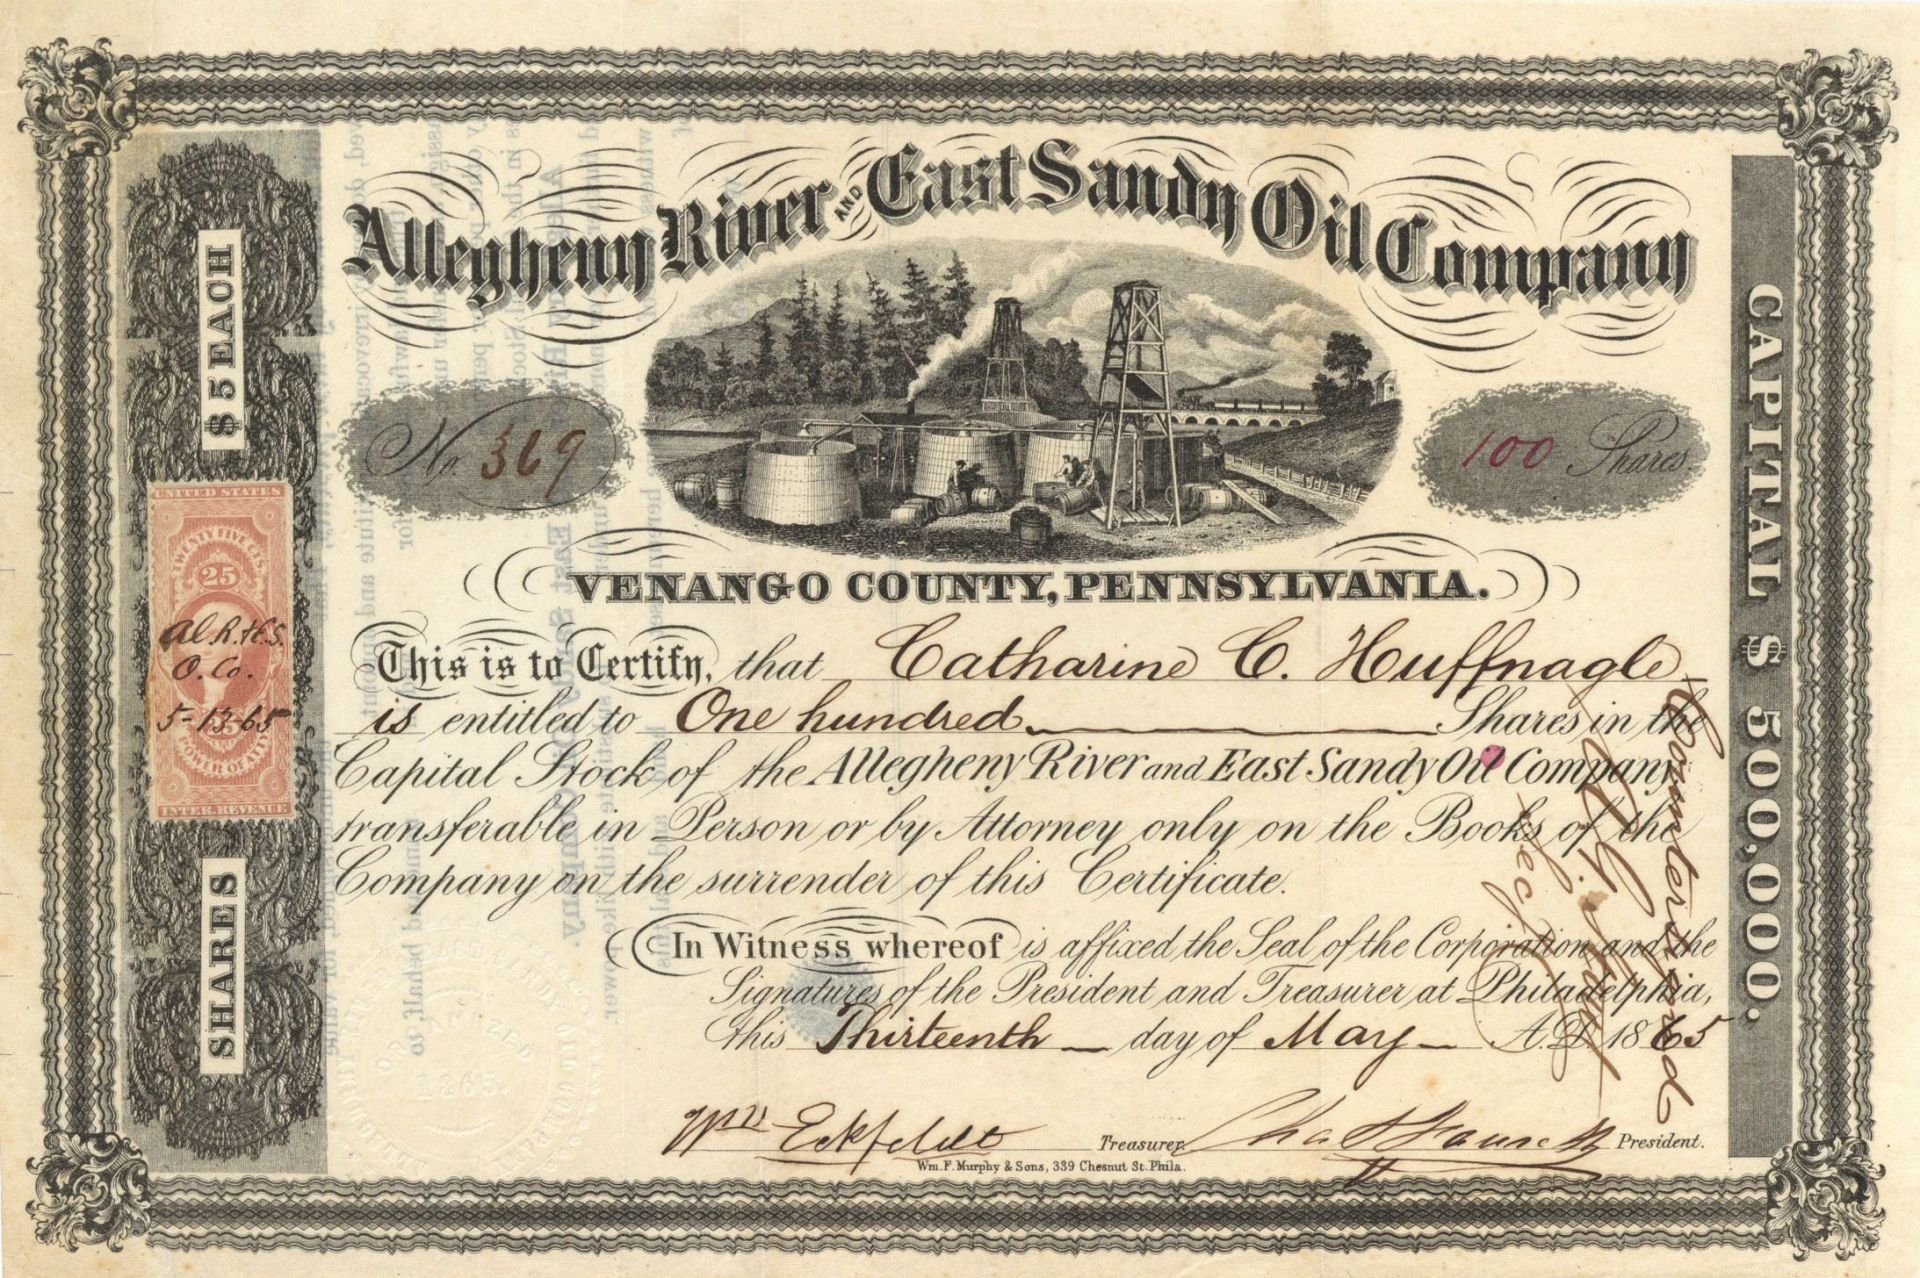 Allegheny River AND East Sandy Oil Company
No. 369
100 Shares.
VENANGO COUNTY, PENNSYLVANIA.
This is to Certify, that Catharine C. Huffnagle
is entitled to One hundred Shares in the
Capital Stock of the Allegheny River and East Sandy Oil Company
transferable in Person or by Attorney only on the Books of the
Company on the surrender of this Certificate.
In Witness whereof is affixed the Seal of the Corporation and the
Signatures of the President and Treasurer at Philadelphia,
this Thirteenth day of May A.D. 1865
Wm Eckfeldt Treasurer. President.
Wm. F. Murphy & Sons, 339 Chesnut St. Phila.
$5 EACH
SHARES
UNITED STATES
TWENTY FIVE CTS.
25
Al. R. & E. S.
O. Co.
5-13-65
25
POWER OF ATT'Y
INTER. REVENUE
CAPITAL $500,000.
Countersigned
Sec'y
1865.